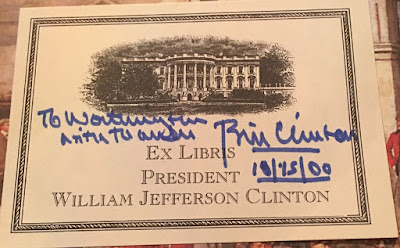 To Worthington
with thanks
Bill Clinton
EX LIBRIS
10/15/00
PRESIDENT
WILLIAM JEFFERSON CLINTON